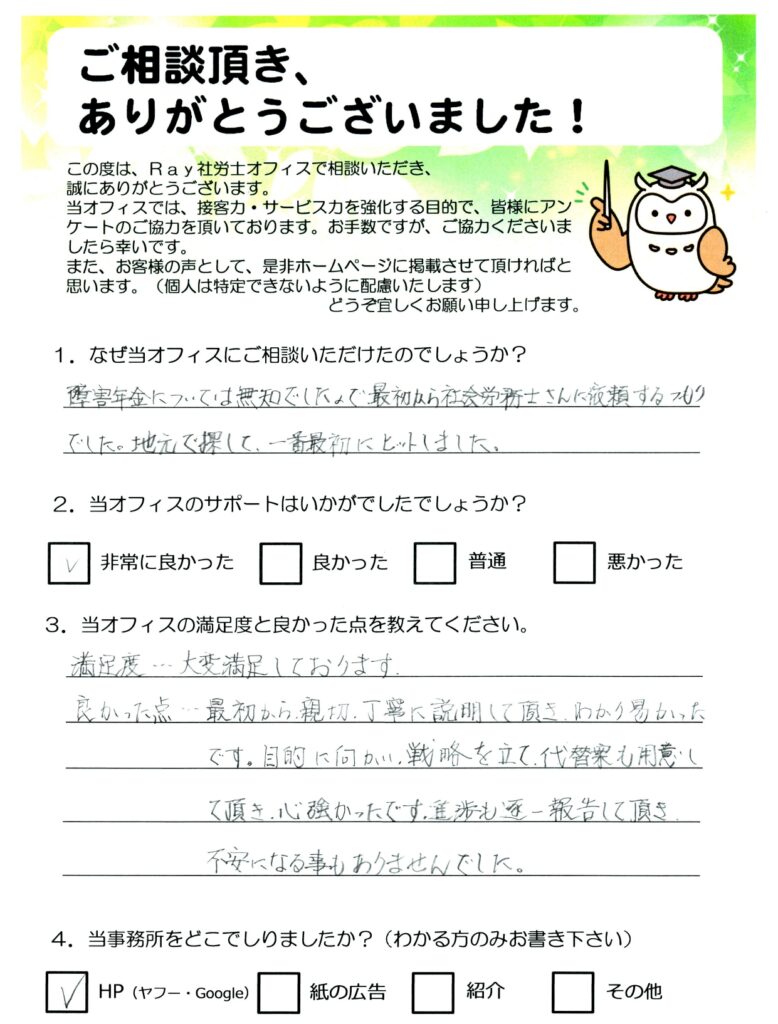 ご相談頂き、
ありがとうございました！
この度は、Ｒａｙ社労士オフィスで相談いただき、
誠にありがとうございます。
当オフィスでは、接客力・サービス力を強化する目的で、皆様にアン
ケートのご協力を頂いております。お手数ですが、ご協力くださいま
したら幸いです。
また、お客様の声として、是非ホームページに掲載させて頂ければと
思います。（個人は特定できないように配慮いたします）
どうぞ宜しくお願い申し上げます。
１．なぜ当オフィスにご相談いただけたのでしょうか？
障害年金については無知でしたので最初から社会労務士さんに依頼するつもり
でした。地元で探して、一番最初にヒットしました。
２．当オフィスのサポートはいかがでしたでしょうか？
✓ 非常に良かった 良かった 普通 悪かった
３．当オフィスの満足度と良かった点を教えてください。
満足度…大変満足しております。
良かった点…最初から、親切、丁寧に説明して頂き、わかり易かった
です。目的に向かい、戦略を立て、代替案も用意し
て頂き、心強かったです。進捗も逐一報告して頂き、
不安になる事もありませんでした。
４．当事務所をどこでしりましたか？（わかる方のみお書き下さい）
✓ HP（ヤフー・Google） 紙の広告 紹介 その他